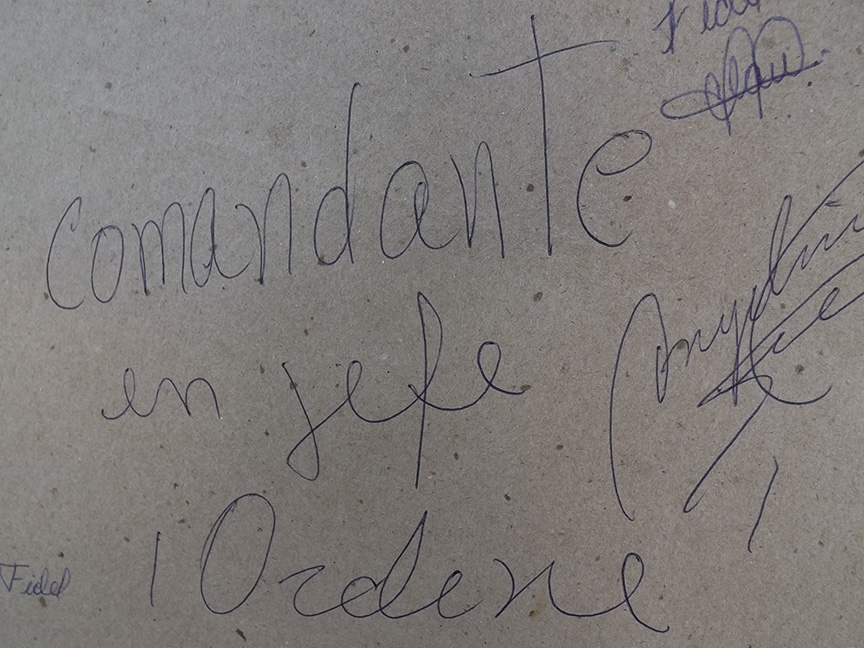 Fidel
comandante
en jefe
¡Ordene!
Fidel